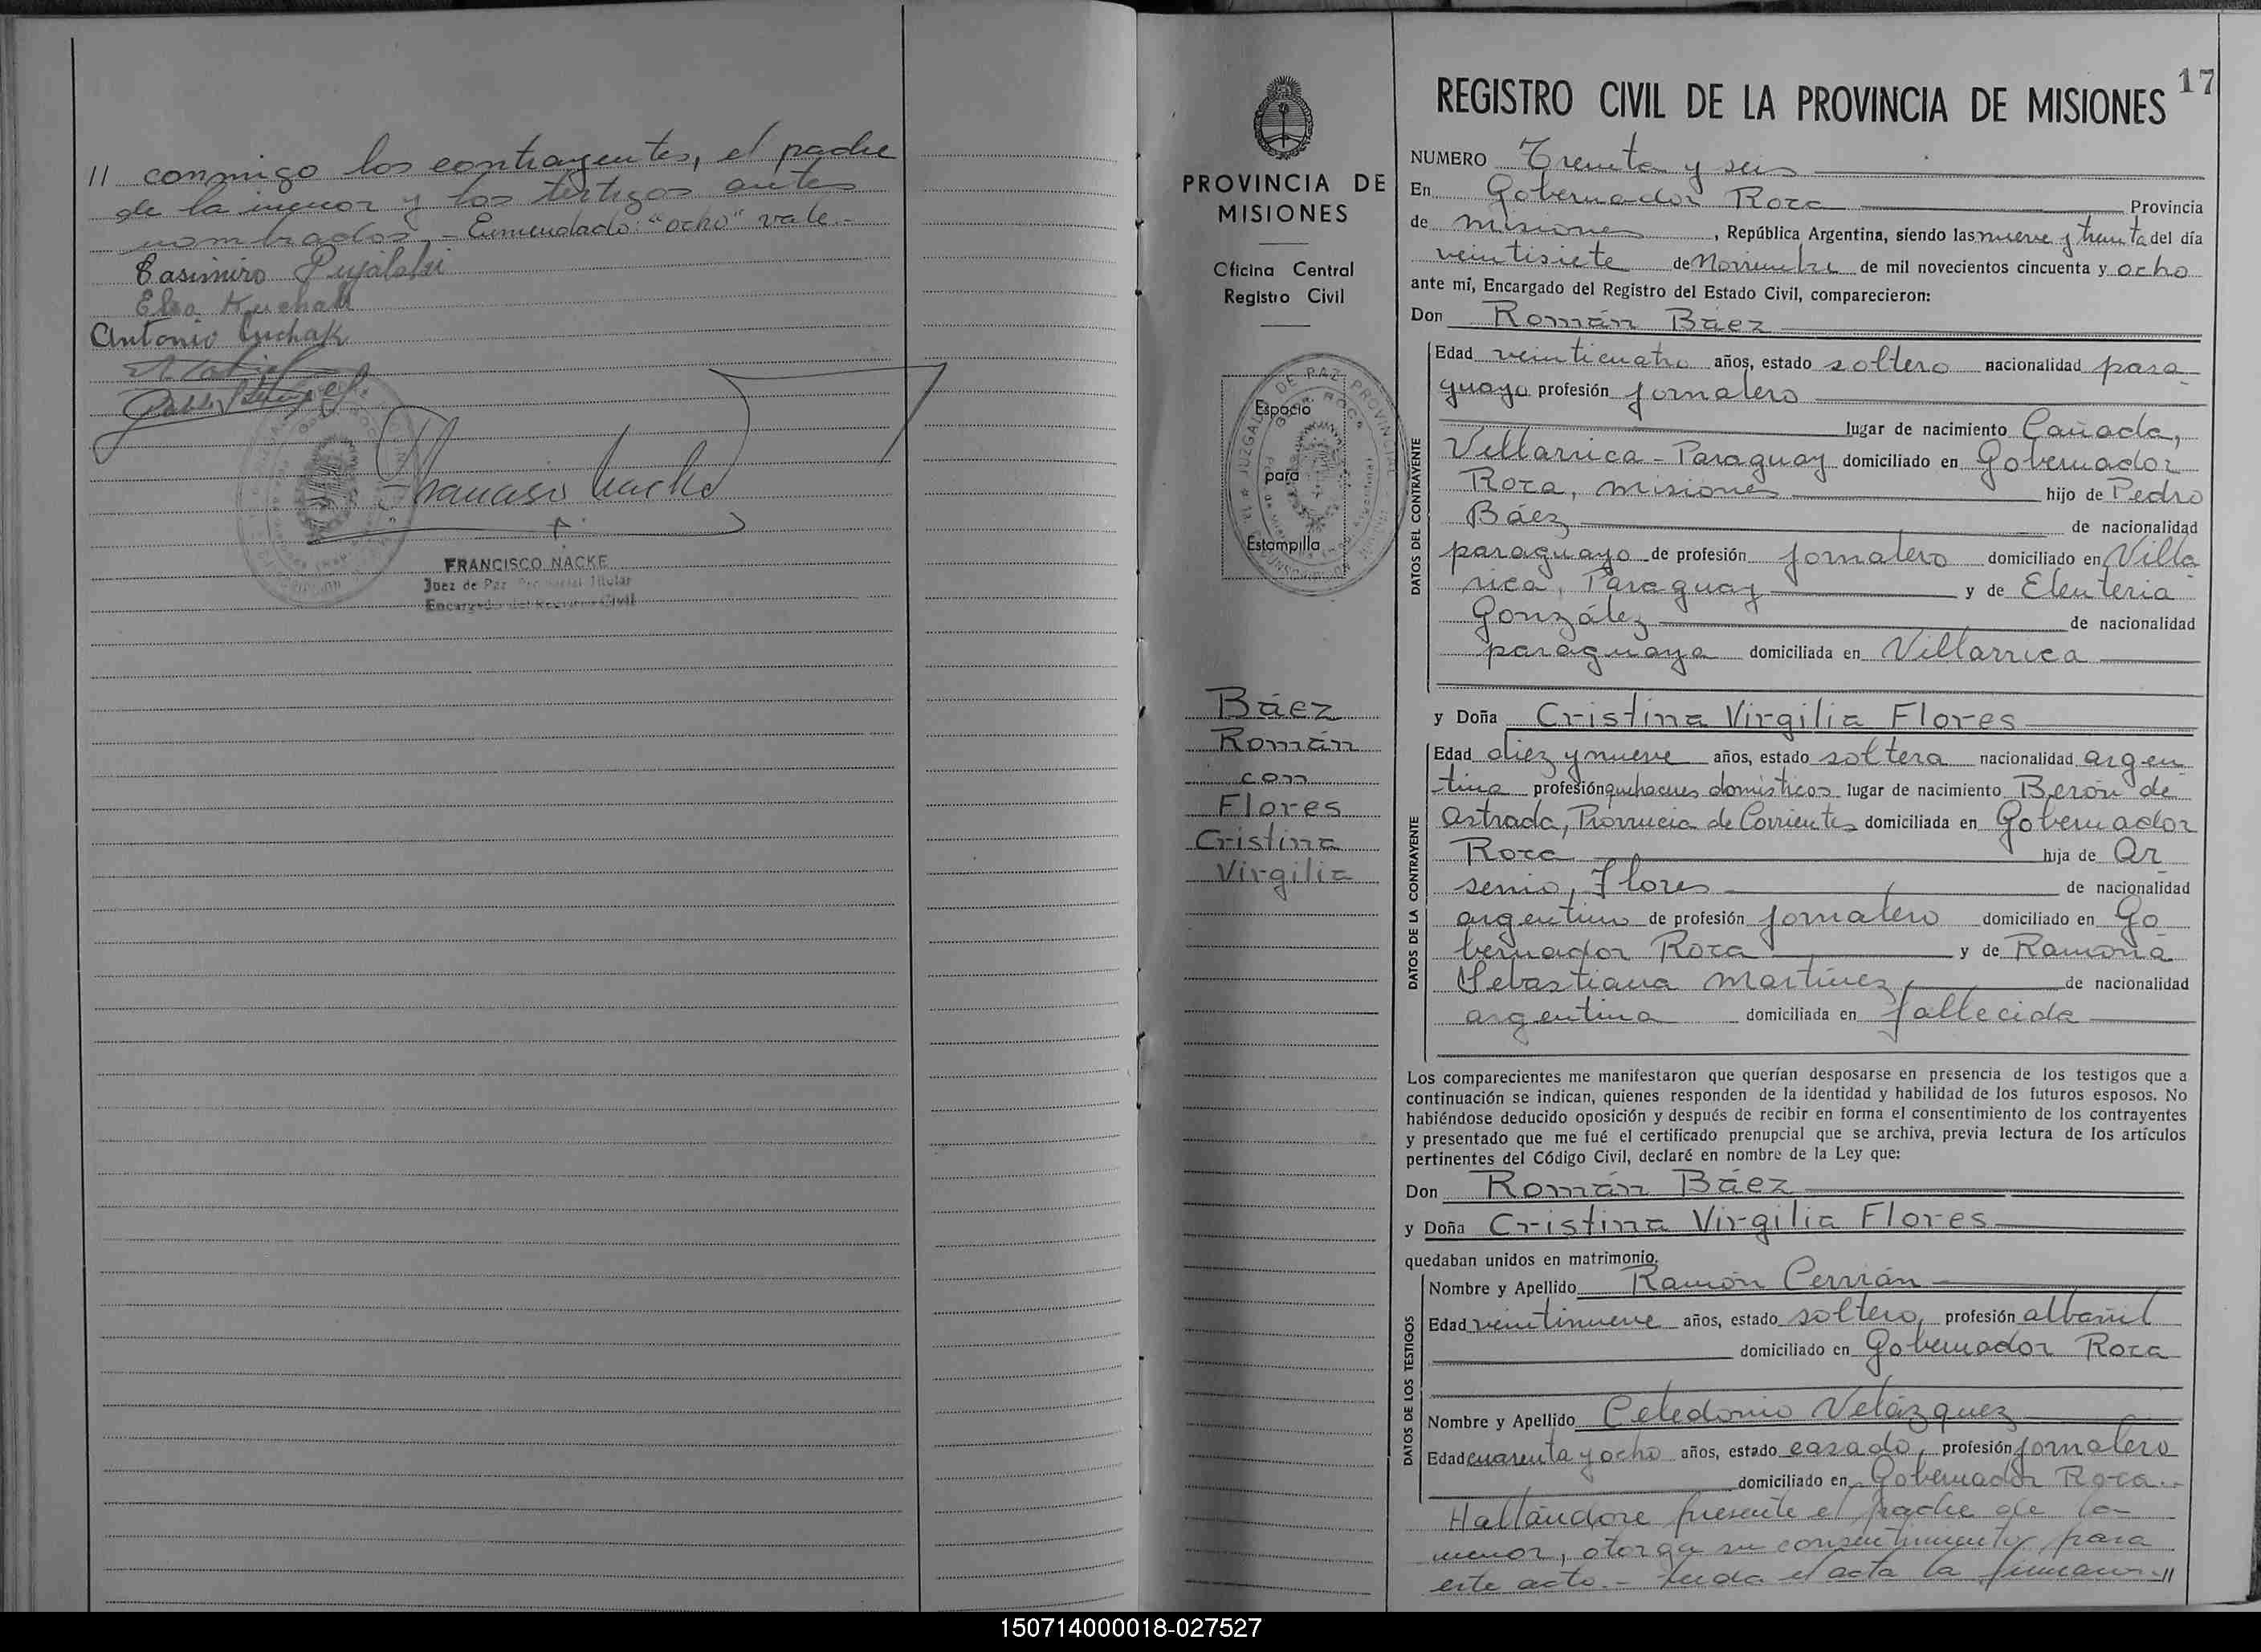 // conmigo los contrayentes, el padre
de la menor y los testigos antes
nombrados. - Enmendado: "ocho" vale.-
Casimiro
Elsa Kuchak
Antonio Kuchak
Pablo
Francisco Nacke
FRANCISCO NACKE
Juez de Paz Provincial Titular
Encargado del Registro Civil
PROVINCIA DE
MISIONES
Oficina Central
Registro Civil
JUZGADO DE PAZ PROVINCIAL
Espacio
para
Estampilla
Báez
Román
con
Flores
Cristina
Virgilia
17
REGISTRO CIVIL DE LA PROVINCIA DE MISIONES
NUMERO Treinta y seis
En Gobernador Roca Provincia
de Misiones, República Argentina, siendo las nueve y treinta del día
veintisiete de Noviembre de mil novecientos cincuenta y ocho
ante mí, Encargado del Registro del Estado Civil, comparecieron:
Don Román Báez
DATOS DEL CONTRAYENTE
Edad veinticuatro años, estado soltero nacionalidad para-
guayo profesión jornalero
lugar de nacimiento Cañada,
Villarrica - Paraguay domiciliado en Gobernador
Roca, Misiones hijo de Pedro
Báez de nacionalidad
paraguayo de profesión jornalero domiciliado en Villa-
rica, Paraguay y de Eleuteria
González de nacionalidad
paraguaya domiciliada en Villarrica
y Doña Cristina Virgilia Flores
DATOS DE LA CONTRAYENTE
Edad diez y nueve años, estado soltera nacionalidad argen-
tina profesión quehaceres domésticos lugar de nacimiento Berón de
Astrada, Provincia de Corrientes domiciliada en Gobernador
Roca hija de Ar-
senio, Flores de nacionalidad
argentino de profesión jornalero domiciliado en Go-
bernador Roca y de Ramona
Sebastiana Martínez de nacionalidad
argentina domiciliada en fallecida
Los comparecientes me manifestaron que querían desposarse en presencia de los testigos que a
continuación se indican, quienes responden de la identidad y habilidad de los futuros esposos. No
habiéndose deducido oposición y después de recibir en forma el consentimiento de los contrayentes
y presentado que me fué el certificado prenupcial que se archiva, previa lectura de los artículos
pertinentes del Código Civil, declaré en nombre de la Ley que:
Don Román Báez
y Doña Cristina Virgilia Flores
quedaban unidos en matrimonio.
DATOS DE LOS TESTIGOS
Nombre y Apellido Ramón
Edad veintinueve años, estado soltero, profesión albañil
domiciliado en Gobernador Roca
Nombre y Apellido Celedonio Velázquez
Edad cuarenta y ocho años, estado casado, profesión jornalero
domiciliado en Gobernador Roca.-
Hallándose presente el padre de la
menor, otorga su consentimiento para
este acto.- Leída el acta la firmaron //
150714000018-027527